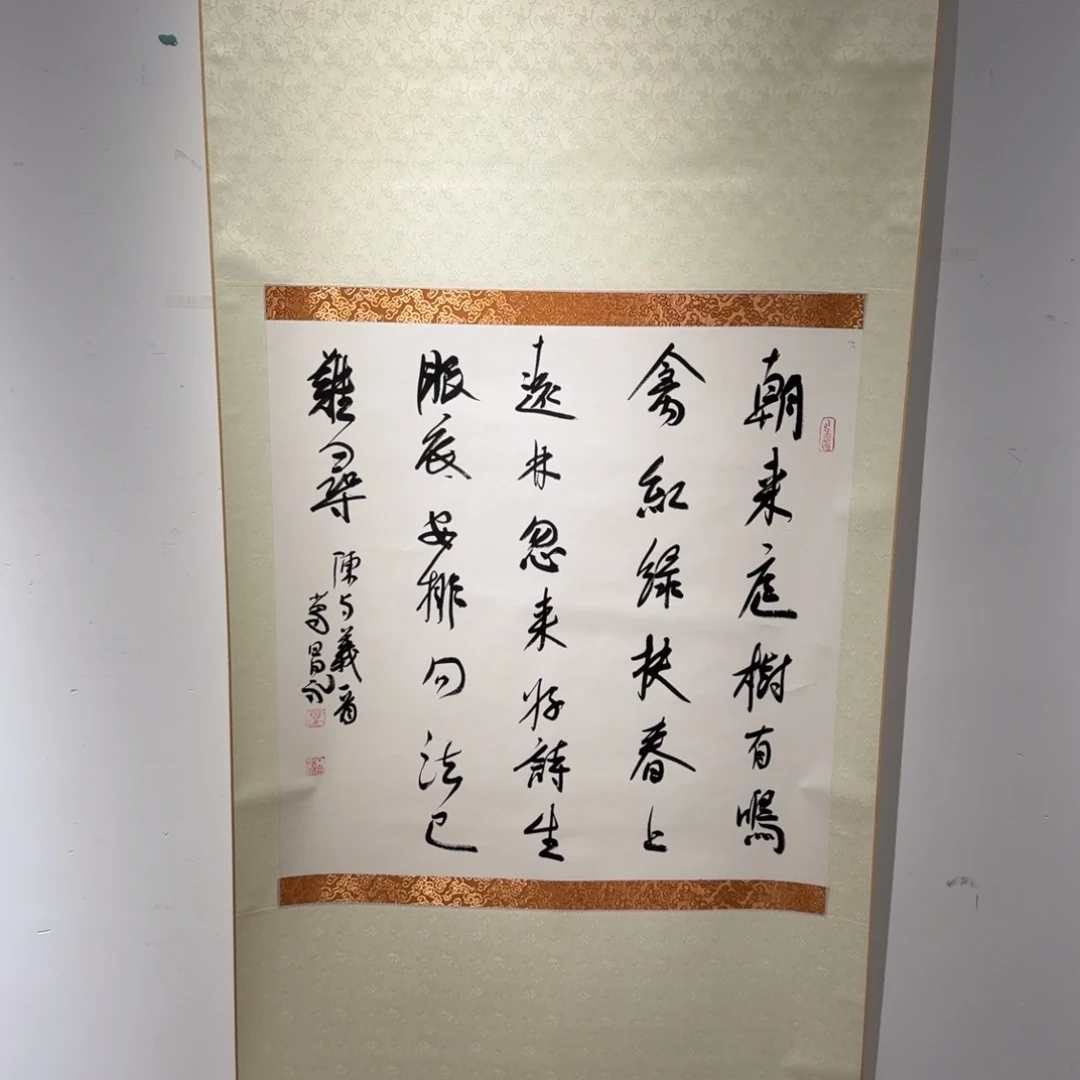 朝来庭樹有鳴
禽紅綠扶春上
遠林忽来好詩生
眼底安排句法已
難尋
陳与義一首
昌永